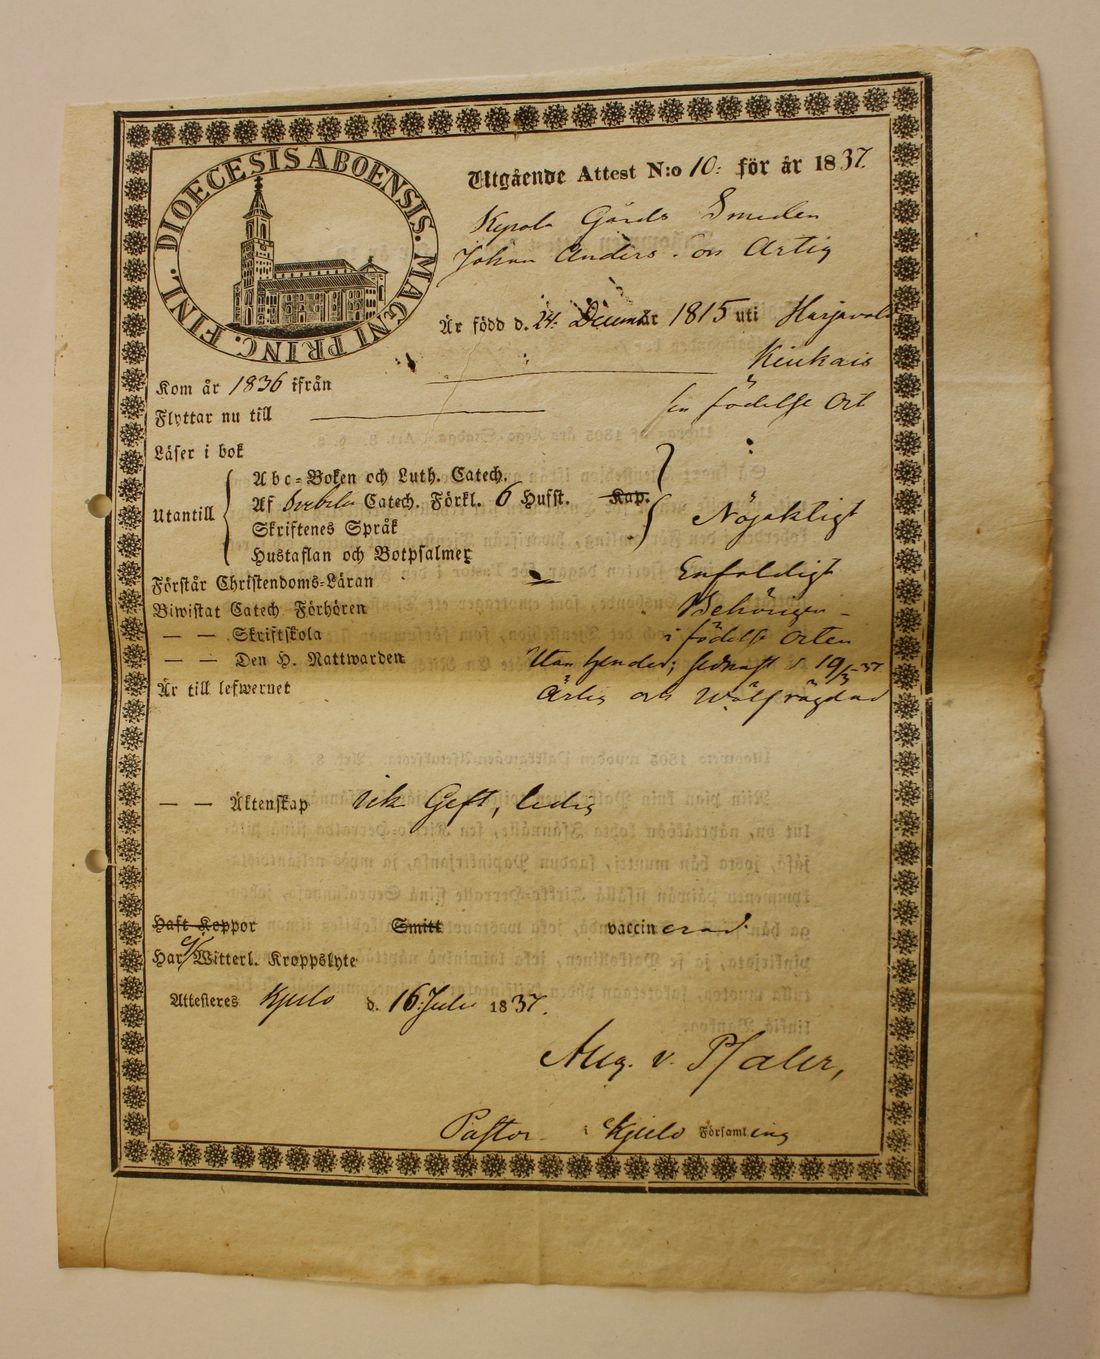 DIOECESIS ABOENSIS. MAGNI PRINC. FINL.
Utgående Attest N:o 10: för år 1837.
Kepola Gårds Smeden
Johan Anders. son Artig
Är född d. 24. Decembr 1815 uti Harjavala
Kom år 1836 ifrån Kiukais
Flyttar nu till sin födelse Ort
Läser i bok
Abc-Boken och Luth. Catech.
Utantill Af Catech. Förkl. 6 Hufst. Kap. Nöjaktigt
Skriftenes Språk
Hustaflan och Botpsalmer
Förstår Christendoms-Läran Enfaldigt
Biwistat Catech. Förhören Behörigen
— — Skriftskola i födelse Orten
— — Den H. Nattwarden Utan hinder; sednast d 19/3 37
Är till lefwernet Ärlig och Wälfrägdad
— — Äktenskap icke Gift, ledig
Haft Koppor Smitt vaccinerad.
Har ej Witterl. Kroppslyte
Attesteres Kjulo d. 16: Julii 1837.
Aug. v. Pfaler,
Pastor i Kjulo Församling